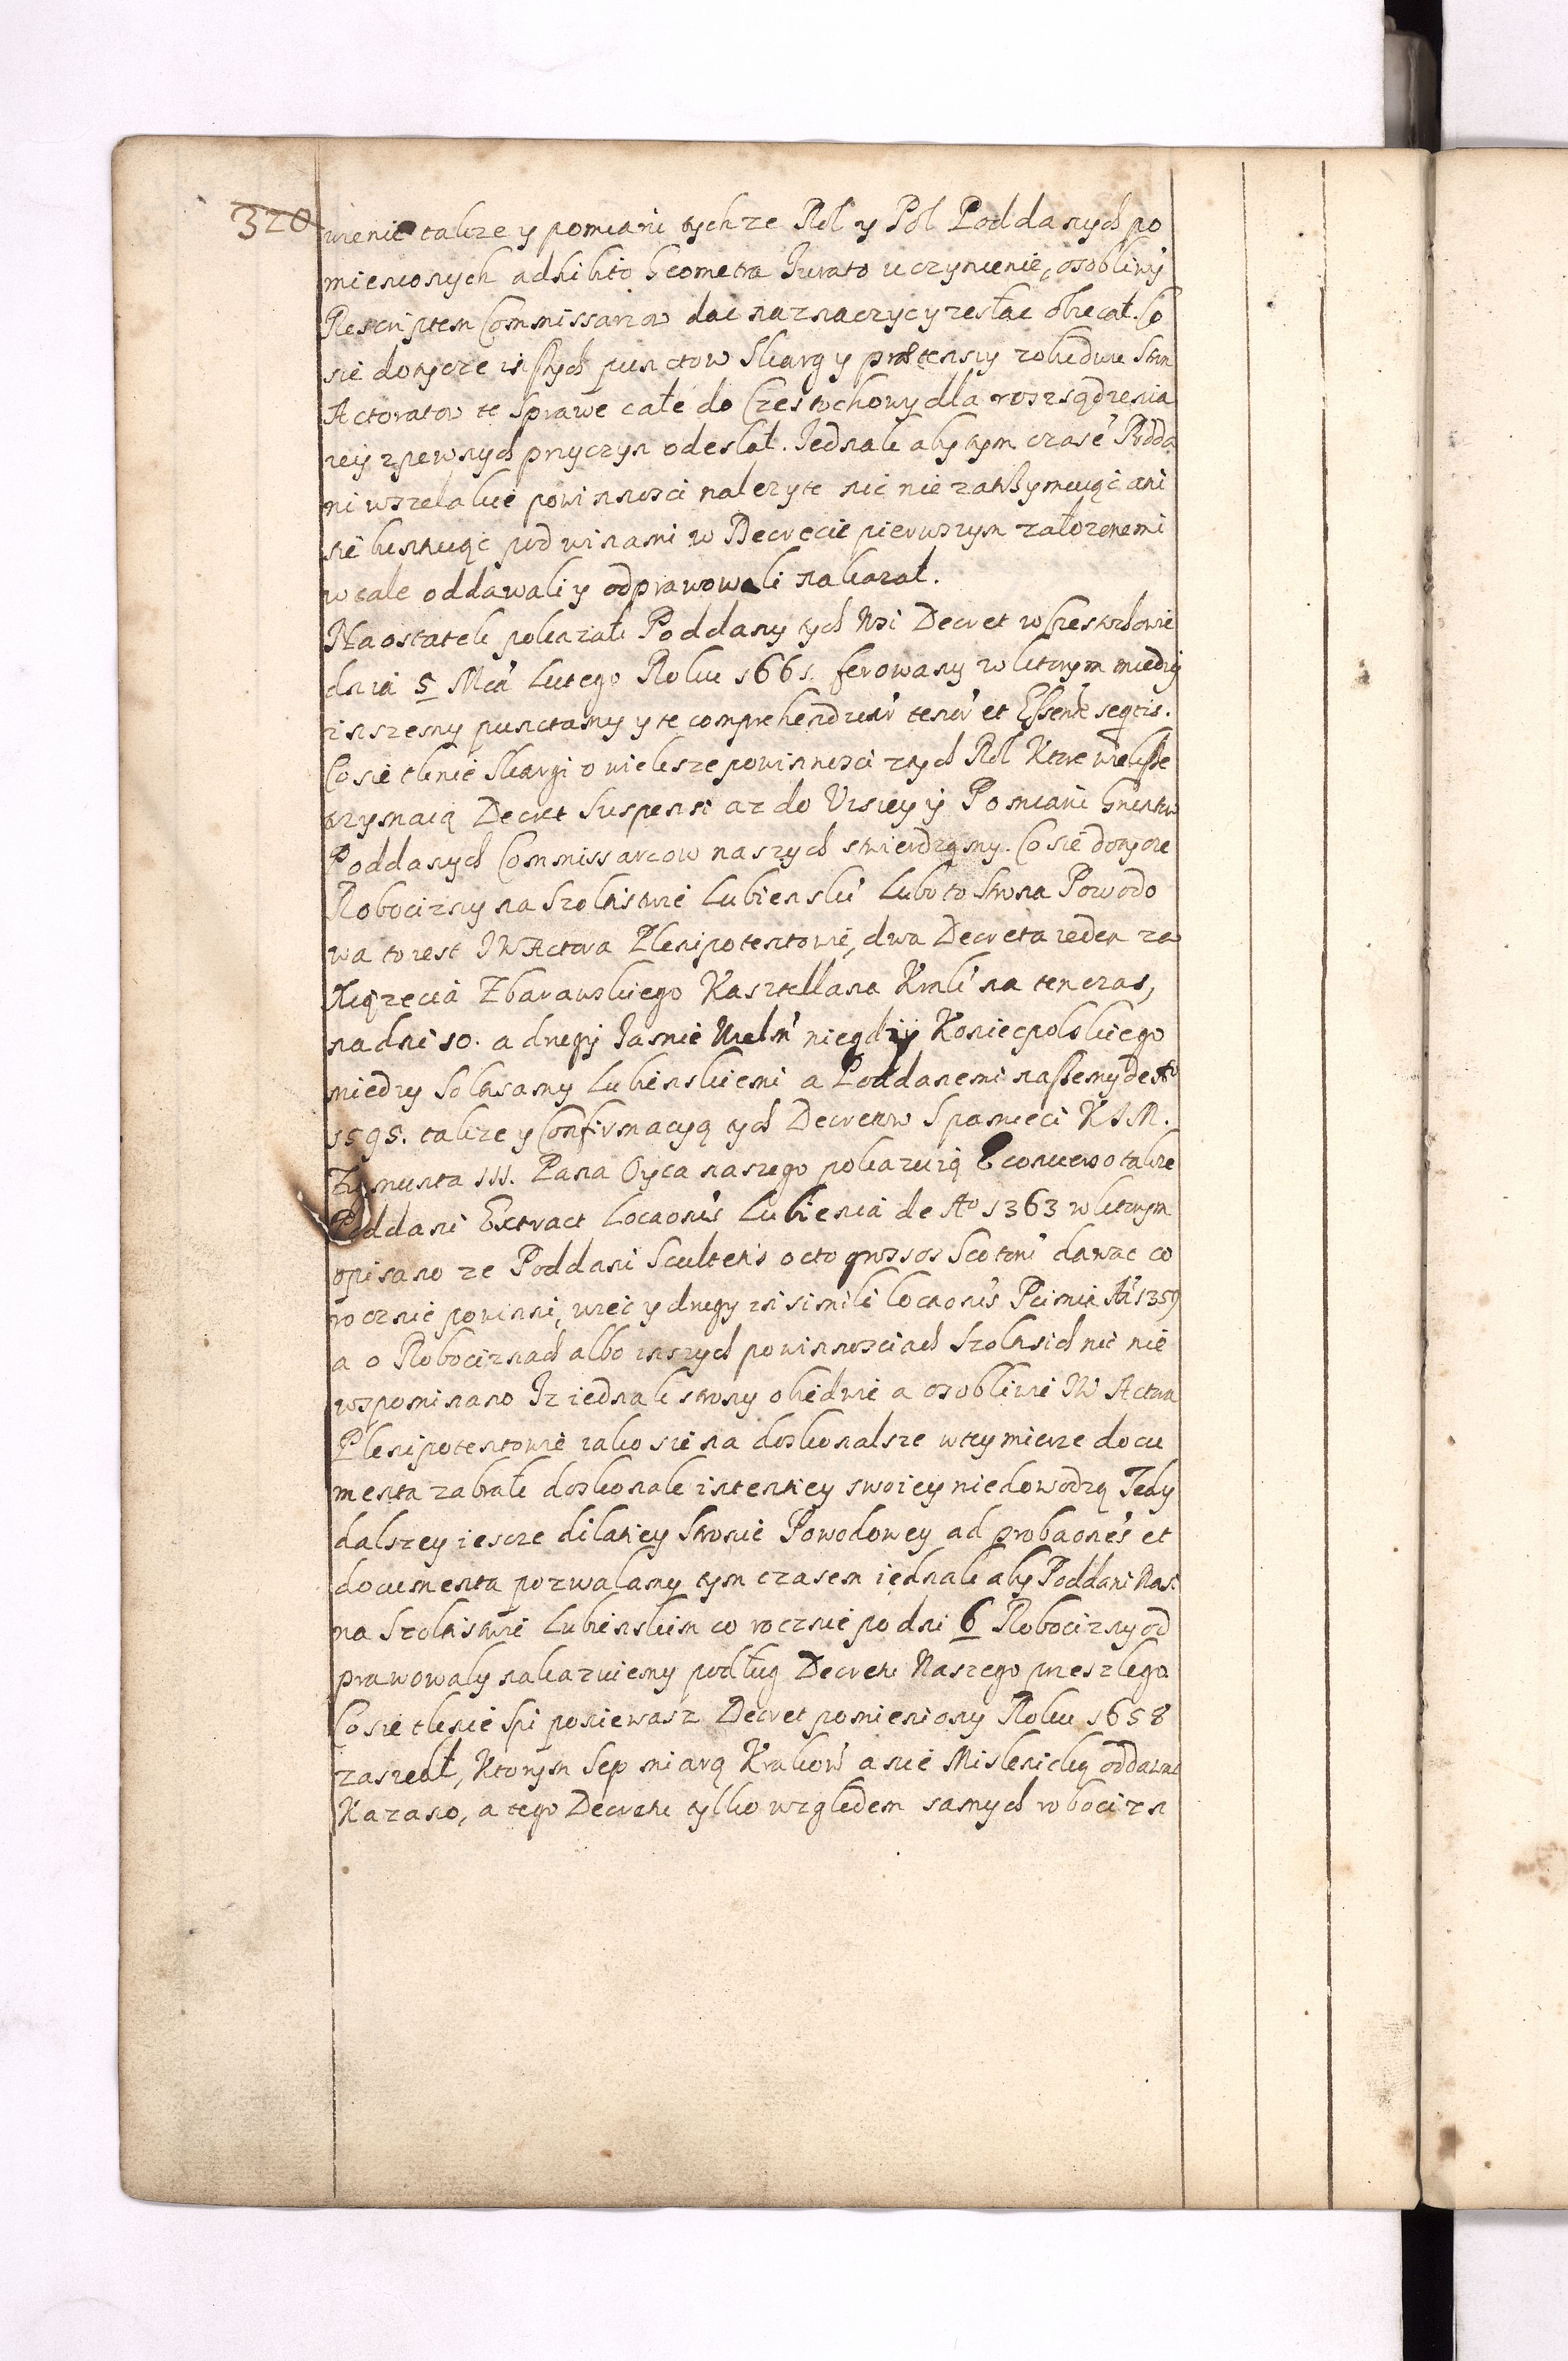 320
wienie takze y pomiani tychze Rol y Pol Poddanych po
mienionych adhibito Geometra Jurato uczynienie, osobliwy
Rescriptem Commissarzow dac naznaczyc y zesłac obiecał. Co
sie dotycze inszych punctow Skarg y prætensiy zobudwu Stron
Actoratow te sprawe całe do Czestochowy dla rozsądzenia
iey z pewnych przyczyn odesłał. Jednak aby tym czase Podda
ni wszelakie powinnosci nalezyte nic nie zatrzymuiąc ani
sie buntuiąc pod winami w Decrecie pierwszym załozonemi
w cale oddawali y odprawowali nakazał.
Na ostatek pokazali Poddany tych Wsi Decret w Czestochowie
dnia 5 Mca Lutego Roku 1661. ferowany w ktorym miedzy
inszemy punctamy y te comprehenduntr tenor et Essentie seqtis.
Co sie tknie Skargi o wieksze powinnosci z tych Rol Ktore wieksze
trzymaią Decret Suspensi az do Visiey y Pomiani Gruntow
Poddanych Commissarzow naszych stwierdzamy. Co sie dotycze
Robocizny na Szoltistwie Lubienski Lubo to Strona Powodo
wa to iest JW Actora Plenipotentowie, dwa Decreta ieden za
Xiązecia Zbarawskiego Kasztellana Krali na ten czas,
na dni 10. a drugy Jasnie Wielm niegdy Koniecpolskiego
miedzy Soltisamy Lubienskiemi a Poddanemi naszemy de Ao
1595. takze y Confirmacyą tych Decretow S pamieci KJM.
Zygmunta III. Pana Oyca naszego pokazuią E converso takze
Poddani Extract Locaonis Lubienia de Ao 1363 w ktorym
opisano ze Poddani Scultetis octo grossos Scotoru dawac co
rocznie powinni, wiec y drugy in simili locaonis Pcimia Ai 1359
a o Robociznach albo inszych powinnosciach Szoltsich nic nie
wspominano Iz iednak strony obiedwie a osobliwie JW Actora
Plenipotentowie iako sie na doskonalsze w tey mierze docu
menta zabrali doskonale intentiey swoiey nie dowodzą Tedy
dalszey iescze dilatiey Stronie Powodowey ad probaones et
documenta pozwalamy tym czasem iednak aby Poddani Nasi
na Szoltistwie Lubienskim co rocznie po dni 6 Robocizny od
prawowaly nakazuiemy podług Decretu Naszego przeszlego
Co sie tknie Spi poniewasz Decret pomieniony Roku 1658
zaszedł, Ktorym Sep miarą Krakow a nie Mislenicką oddawac
Kazano, a tego Decretu tylko względem samych robocizn